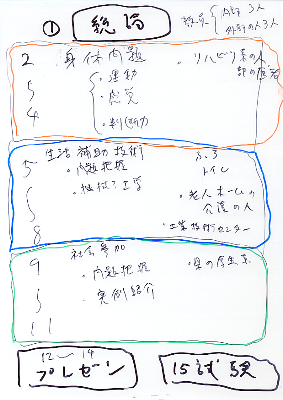 ① 総論
教員 内部 3人
外部の人 3人
2 身体問題
・リハビリ
5 ・運動
・感覚
4 ・判断力
5 生活補助技術
・問題把握
ふろ
トイレ
・機械と工学
・老人ホームの
介護の人
8
・工業技術センター
9 社会参加
・問題把握
・県の厚生
5 ・実例紹介
11
12〜14
プレゼン
15 試験